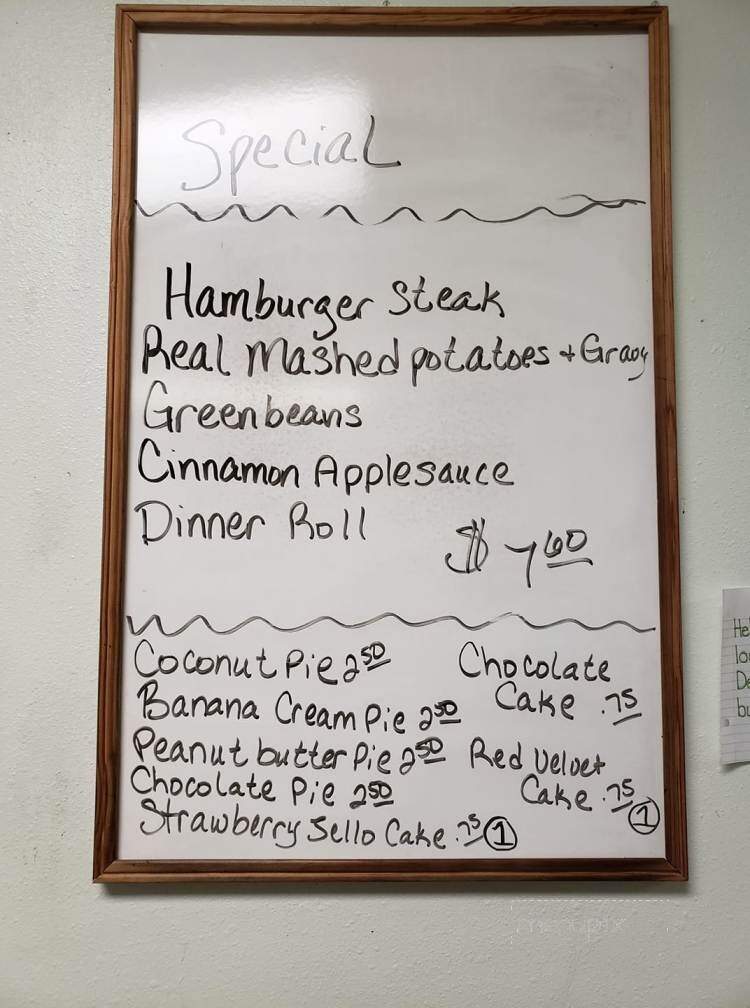 Special
Hamburger Steak
Real Mashed potatoes + Gravy
Greenbeans
Cinnamon Applesauce
Dinner Roll
$ 7 60
Coconut Pie 2 50
Banana Cream Pie 2 50
Peanut butter Pie 2 50
Chocolate Pie 2 50
Strawberry Jello Cake .75 1
Chocolate
Cake .75
Red Velvet
Cake .75 1
He
lo
De
bu
menupix